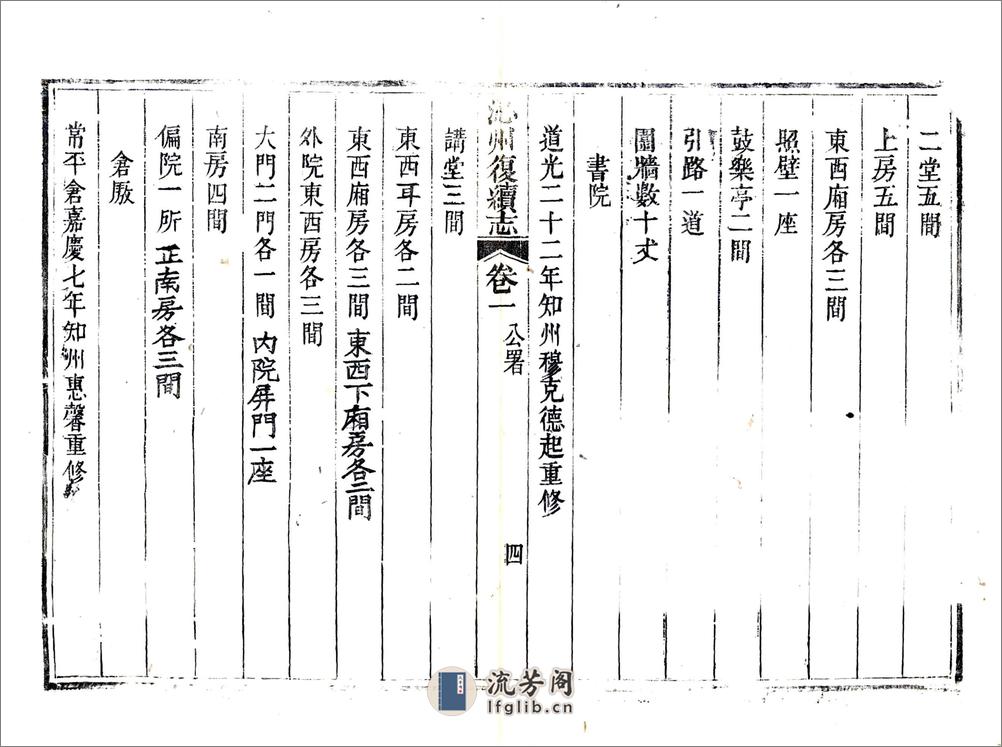 二堂五間
上房五間
東西廂房各三間
照壁一座
鼓樂亭二間
引路一道
圍牆數十丈
書院
道光二十二年知州穆克德起重修
沁州復續志 卷一 公署 四
講堂三間
東西耳房各二間
東西廂房各三間 東西下廂房各二間
外院東西房各三間
大門二門各一間 內院屏門一座
南房四間
偏院一所 正南房各三間
倉厫
常平倉嘉慶七年知州惠馨重修
流芳阁
lfglib.cn